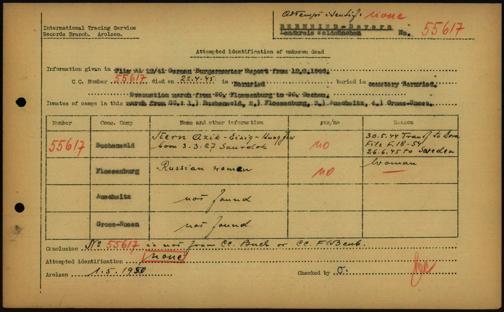 Attempt. identif: none
International Tracing Service
Records Branch. Arolsen.
BERNRIED-Bavaria
Landkreis Waldmünchen
No. 55617
Attempted identification of unknown dead
Information given in File A1 12/41 German Burgermaster Report from
C.C. Number 55617 died on 22.4.45 in Bernried Buried in cemetery Bernried.
Evacuation march from CC. Flossenburg to CC. Dachau.
Inmates of camps in this march from CC. 1.) Buchenwald, 2.) Flossenburg, 3.) Auschwitz, 4.) Gross-Rosen.
Number Conc. Camp Name and other information yes/no Reason
55617 Buchenwald Stern born 3.3.27 no 30.5.44 Transf. to
File F 18-54
26.6.45 to Sweden
Flossenburg Russian woman no Woman
Auschwitz not found
Gross-Rosen not found
Conclusion No 55617 is not from CC. Buch or CC. Flossenb.
Attempted identification none
Arolsen 1.5.1950 Checked by